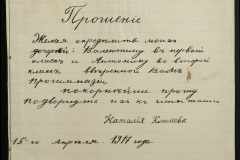 Прошеніе
Желая определить моихъ
дочерей: Валентину въ первый
классъ и Антонину во второй
классъ ввѣренной Вамъ
Прогимназіи
покорнѣйше прошу
подвергнуть ихъ испытанію
Наталія
15-го апрѣля 1911 года